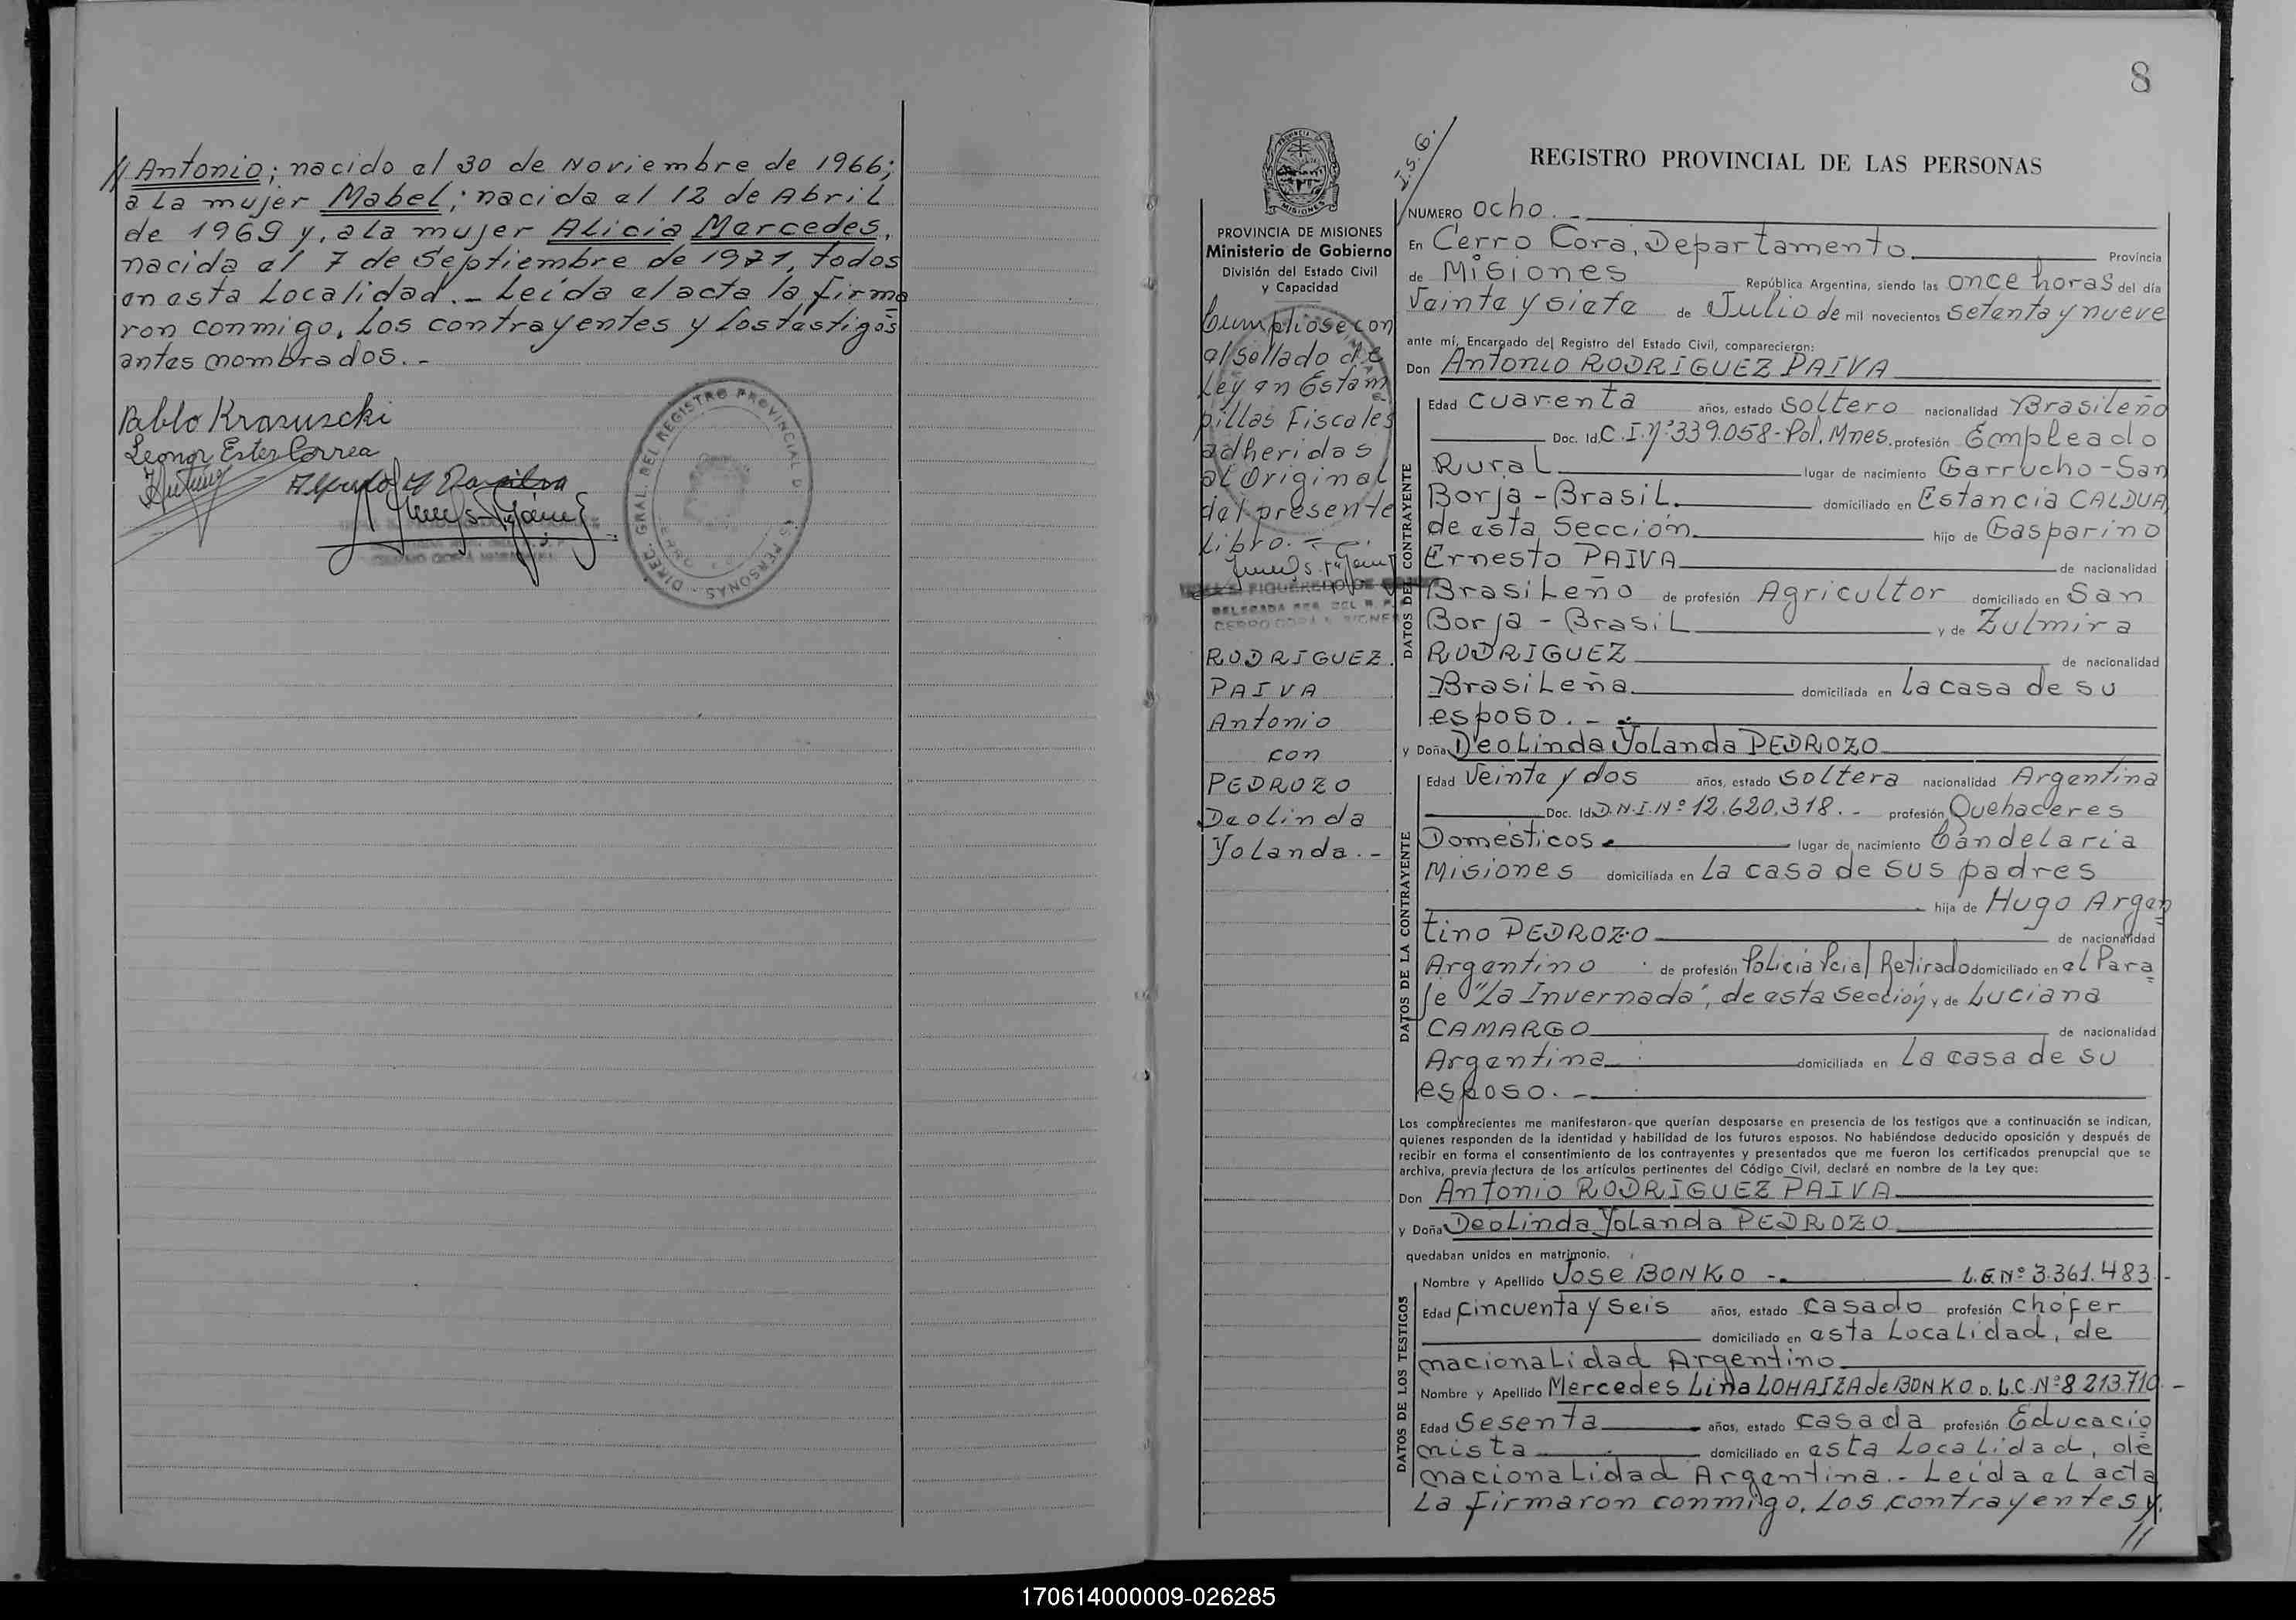 // Antonio; nacido el 30 de Noviembre de 1966;
a la mujer Mabel; nacida el 12 de Abril
de 1969 y, a la mujer Alicia Mercedes,
nacida el 7 de Septiembre de 1971, todos
en esta Localidad.- Leída el acta la firma
ron conmigo, los contrayentes y los testigos
antes nombrados.-
Pablo Krasuscki
Leonor Ester Correa
DIREC. GRAL. DEL REGISTRO PROVINCIAL DE LAS PERSONAS
8
I.S.G.
PROVINCIA DE MISIONES
Ministerio de Gobierno
División del Estado Civil
y Capacidad
Cumpliose con
el sellado de
Ley en Estam
pillas Fiscales
adheridas
al Original
del presente
Libro.-
RODRIGUEZ
PAIVA
Antonio
con
PEDROZO
Deolinda
Yolanda.-
REGISTRO PROVINCIAL DE LAS PERSONAS
NUMERO Ocho.-
En Cerro Corá, Departamento Provincia
de Misiones República Argentina, siendo las once horas del día
Veinte y siete de Julio de mil novecientos setenta y nueve
ante mí, Encargado del Registro del Estado Civil, comparecieron:
Don Antonio RODRIGUEZ PAIVA
DATOS DEL CONTRAYENTE
Edad Cuarenta años, estado Soltero nacionalidad Brasileño
Doc. Id. C.I.Nº339.058-Pol.Mnes. profesión Empleado
Rural lugar de nacimiento Garrucho-San
Borja-Brasil. domiciliado en Estancia CALDUA,
de esta Sección. hijo de Gasparino
Ernesto PAIVA de nacionalidad
Brasileño de profesión Agricultor domiciliado en San
Borja-Brasil y de Zulmira
RODRIGUEZ de nacionalidad
Brasileña domiciliada en La casa de su
esposo.-
y Doña Deolinda Yolanda PEDROZO
DATOS DE LA CONTRAYENTE
Edad Veinte y dos años, estado Soltera nacionalidad Argentina
Doc. Id. D.N.I.Nº 12.620.318.- profesión Quehaceres
Domésticos lugar de nacimiento Candelaria
Misiones domiciliada en La casa de sus padres
hija de Hugo Argen
tino PEDROZO de nacionalidad
Argentino de profesión Policía Pcial Retirado domiciliado en el Para
je "La Invernada", de esta Sección y de Luciana
CAMARGO de nacionalidad
Argentina domiciliada en La casa de su
esposo.-
Los comparecientes me manifestaron que querían desposarse en presencia de los testigos que a continuación se indican,
quienes responden de la identidad y habilidad de los futuros esposos. No habiéndose deducido oposición y después de
recibir en forma el consentimiento de los contrayentes y presentados que me fueron los certificados prenupcial que se
archiva, previa lectura de los artículos pertinentes del Código Civil, declaré en nombre de la Ley que:
Don Antonio RODRIGUEZ PAIVA
y Doña Deolinda Yolanda PEDROZO
quedaban unidos en matrimonio.
DATOS DE LOS TESTIGOS
Nombre y Apellido Jose BONKO -. L.E.Nº 3.361.483.-
Edad Cincuenta y Seis años, estado Casado profesión Chofer
domiciliado en esta Localidad, de
nacionalidad Argentino
Nombre y Apellido Mercedes Lina LOHAIZA de BONKO D. L.C.Nº8 213.710.-
Edad Sesenta años, estado Casada profesión Educacio
nista domiciliado en esta Localidad, de
nacionalidad Argentina.- Leida el acta
La firmaron conmigo, Los contrayentes y
//
170614000009-026285